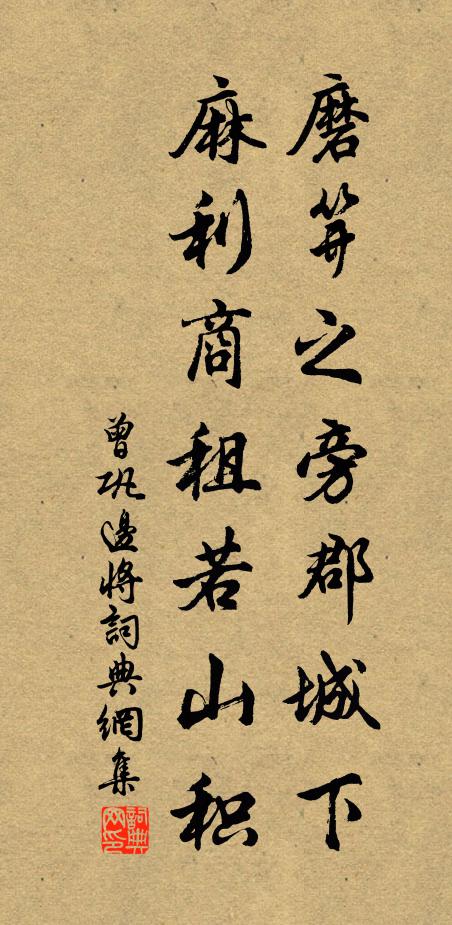 磨笄之旁郡城下
麻利商租若山积
曾巩边将詞典網集
詞典网印